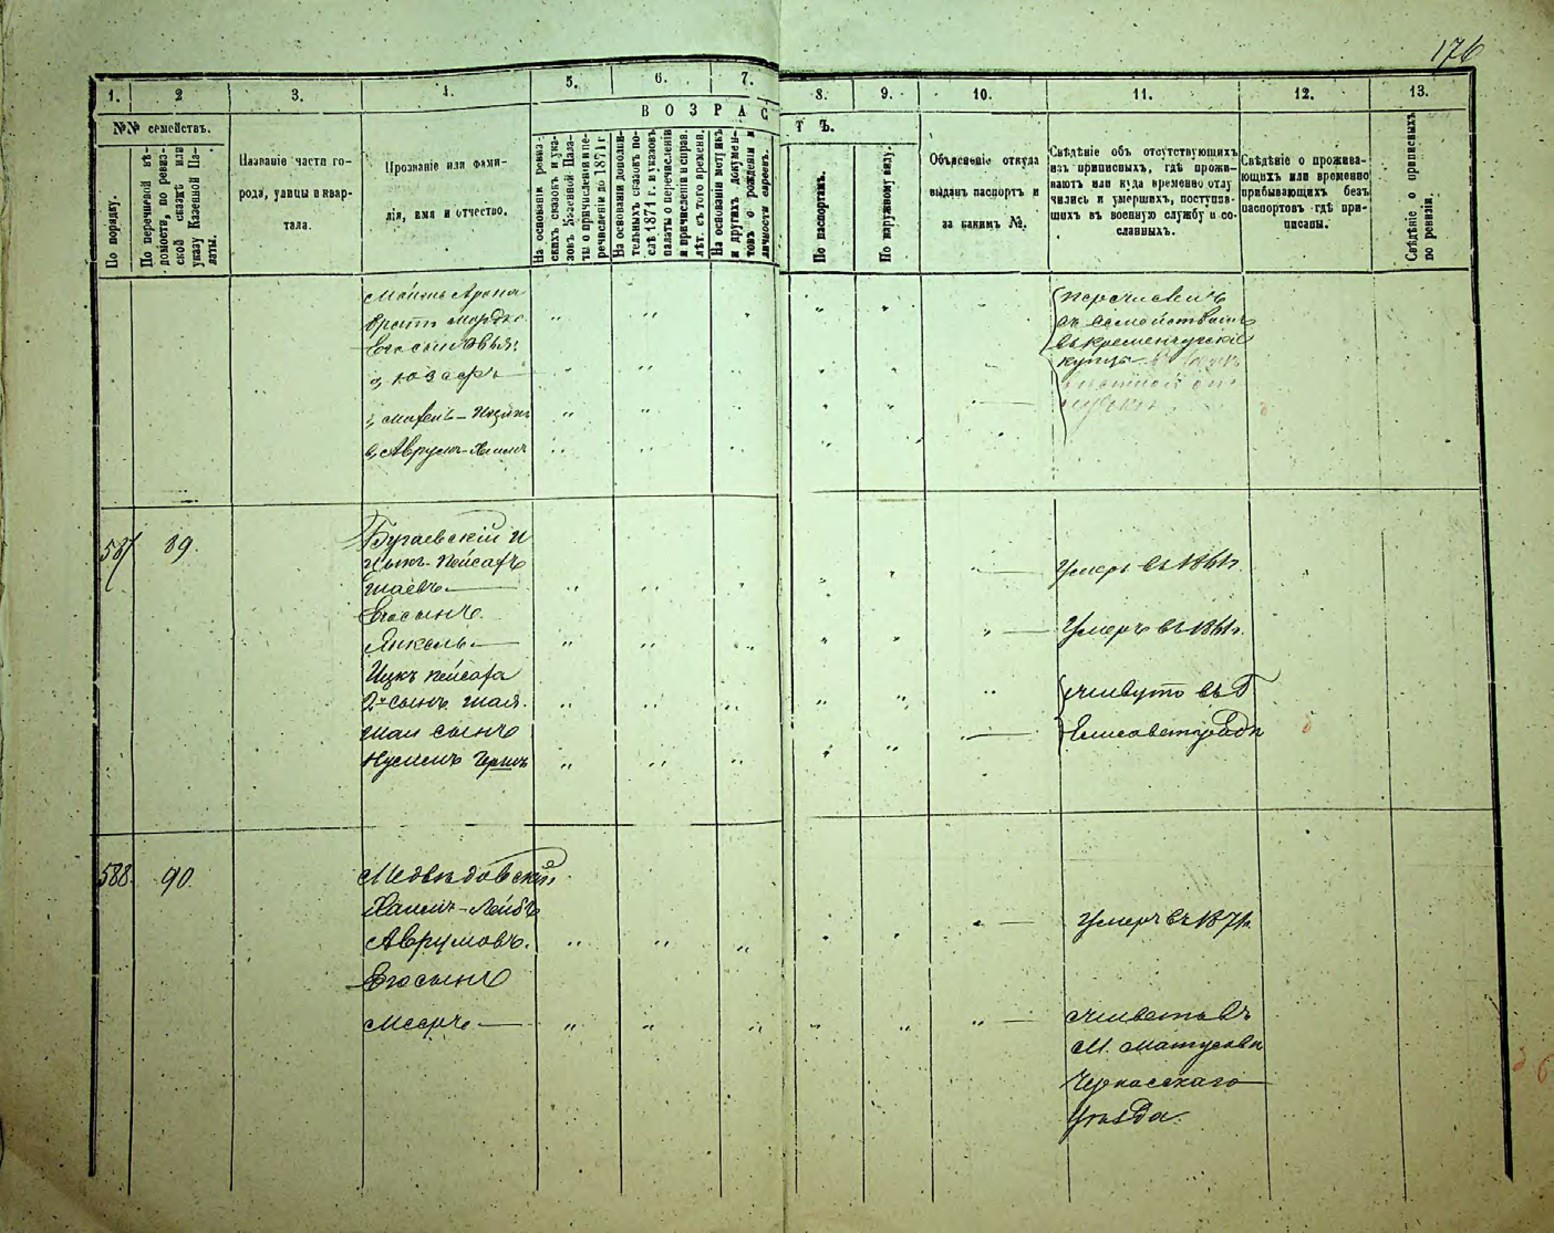 176
1. 2 3. 4. 5. 6. 7. 8. 9. 10. 11. 12. 13.
№№ семействъ.
По порядку.
По перечневой вѣ-
домости, по ревиз-
ской сказкѣ или
указу Казенной Па-
латы.
Названіе части го-
рода, улицы и квар-
тала.
Прозваніе или фами-
лія, имя и отчество.
ВОЗРАСТЪ.
На основаніи ревиз-
скихъ сказокъ и ука-
зовъ Казенной Пала-
ты о причисленіи и пе-
речисленіи до 1871 г.
На основаніи дополни-
тельныхъ сказокъ по-
слѣ 1871 г. и указовъ
палаты о перечисленіи
и причисленіи и справ.
лѣт. съ того времени.
На основаніи метрикъ
и другихъ докумен-
товъ о рожденіи и
личности евреевъ.
По паспортамъ.
По наружному виду.
Объясненіе откуда
выданъ паспортъ и
за какимъ №.
Свѣдѣніе объ отсутствующихъ
изъ приписныхъ, гдѣ прожи-
ваютъ или куда временно отлу
чились и умершихъ, поступив-
шихъ въ военную службу и со-
сланныхъ.
Свѣдѣніе о прожива-
ющихъ или временно
прибывающихъ безъ
паспортовъ гдѣ при-
писаны.
Свѣдѣніе о приписныхъ
по ревизіи.
Арона
братъ Мордко
Его сыновья:
Юзефъ
Аврумъ-Хаимъ
перечисленъ
съ семействомъ
въ кременчугскіе
купцы
587 89.
Бугаевскій И
Пейсахъ
Шаевъ
Умеръ въ 1861 г.
Его сынъ
Янкель
Умеръ въ 1861 г.
Ицкъ Пейсаха
2й сынъ Шая.
живутъ въ Г
Шаи сынъ
Елисаветградѣ
Нусимъ Гершъ
588. 90.
Медвѣдовскій
Хаимъ-Лейбъ
Аврумовъ.
Умеръ въ 1871 г.
Его сынъ
Мееръ
живетъ въ
М. Матусовѣ
Черкасскаго
Уѣзда.